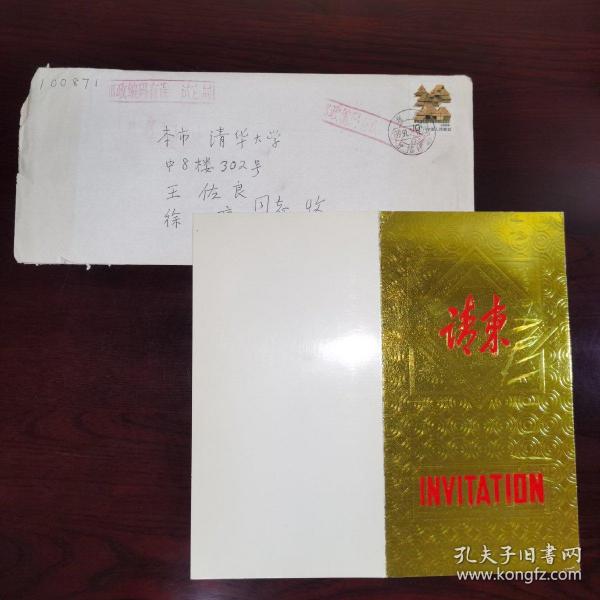 100871
邮政编码有误 试它局
本市 清华大学
中8楼302号
王佐良
徐 同志 收
请柬
INVITATION
孔夫子旧书网
www.kongfz.com